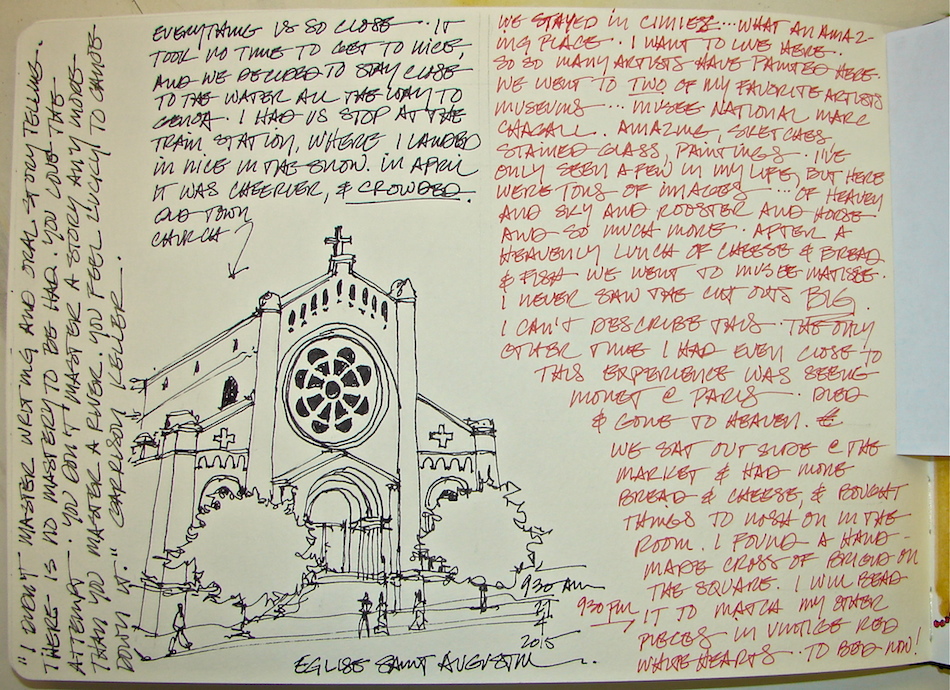 "I DIDN'T MASTER WRITING AND ORAL STORY TELLING.
THERE IS NO MASTERY TO BE HAD. YOU LOVE THE
ATTEMPT. YOU DON'T MASTER A STORY ANY MORE
THAN YOU MASTER A RIVER. YOU FEEL LUCKY TO CANOE
DOWN IT." GARRISON KEILLER.
EVERYTHING IS SO CLOSE... IT
TOOK NO TIME TO GET TO NICE,
AND WE DECIDED TO STAY CLOSE
TO THE WATER ALL THE WAY TO
GENOA. I HAD US STOP AT THE
TRAIN STATION, WHERE I LANDED
IN NICE IN THE SNOW. IN APRIL
IT WAS CHEERIER, & CROWDED.
OLD TOWN
CHURCH
930 AM
21
4
2015
EGLISE SAINT AUGUSTIN
WE STAYED IN CIMIEZ... WHAT AN AMAZ-
ING PLACE. I WANT TO LIVE HERE.
SO SO MANY ARTISTS HAVE PAINTED HERE.
WE WENT TO TWO OF MY FAVORITE ARTISTS
MUSEUMS... MUSEE NATIONAL MARC
CHAGALL. AMAZING, SKETCHES
STAINED GLASS, PAINTINGS. I'VE
ONLY SEEN A FEW IN MY LIFE, BUT HERE
WERE TONS OF IMAGES... OF HEAVEN
AND SKY AND ROOSTER AND HORSE
AND SO MUCH MORE. AFTER A
HEAVENLY LUNCH OF CHEESE & BREAD
& FISH WE WENT TO MUSEE MATISSE.
I NEVER SAW THE CUT OUTS BIG.
I CAN'T DESCRIBE THIS. THE ONLY
OTHER TIME I HAD EVEN CLOSE TO
THIS EXPERIENCE WAS SEEING
MONET @ PARIS. DIED
& GONE TO HEAVEN.
WE SAT OUTSIDE @ THE
MARKET & HAD MORE
BREAD & CHEESE, & BOUGHT
THINGS TO NOSH ON IN THE
ROOM. I FOUND A HAND-
MADE CROSS OF BRIGID ON
THE SQUARE. I WILL BEAD
930 PM IT TO MATCH MY OTHER
PIECES IN VINTAGE RED
WHITE HEARTS... TO BED NOW!